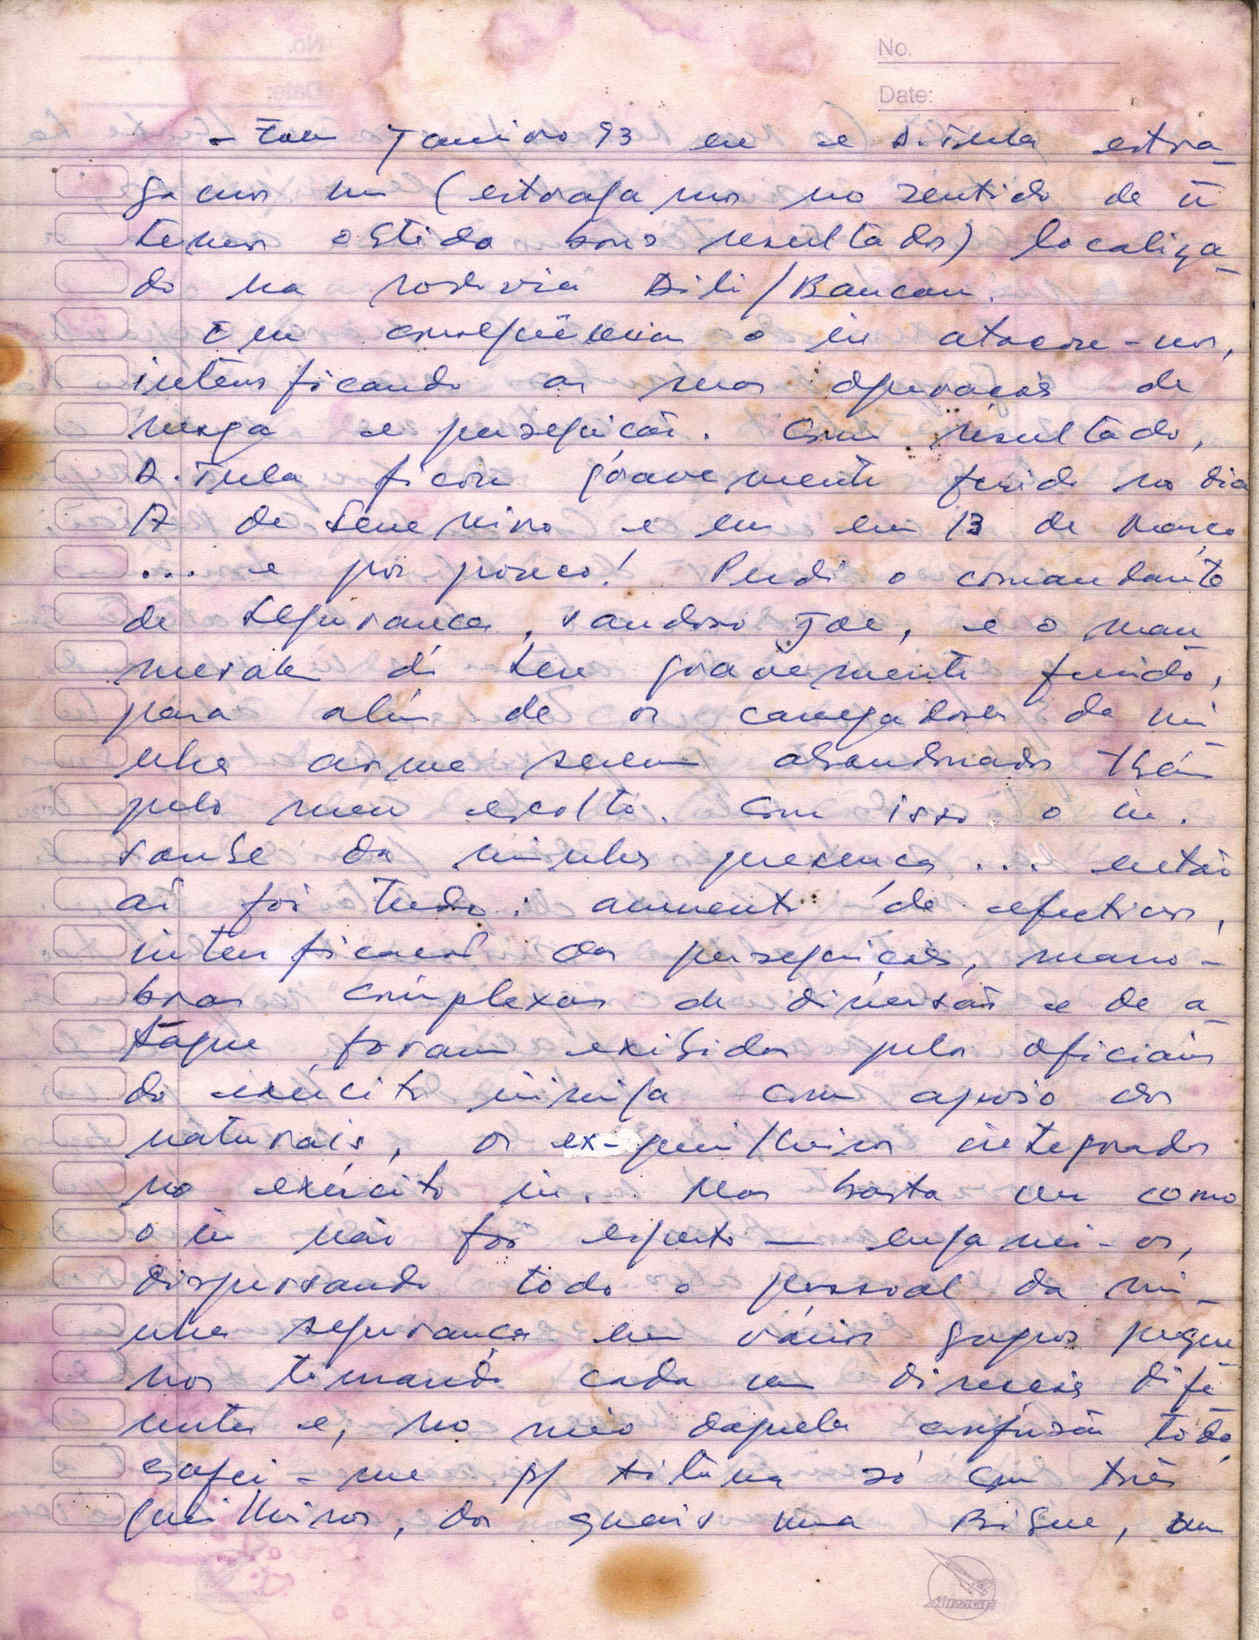 No.
Date:
- Em Janeiro 93 eu e D. Tula estra-
gamos um (estragamos no sentido de ñ
termos obtido bons resultados) localiza-
do na rodovia Dili/Baucau.
Em consequência o in atacou-nos,
intensificando as suas operações de
rusga e perseguição. Como resultado,
D. Tula ficou gravemente ferido no dia
17 de Fevereiro e eu em 13 de Março
... e por pouco! Perdi o comandante
de segurança, saudoso Joe, e o
gravemente ferido,
para além de os carregadores da mi-
nha arma serem abandonados tbém
pelo meu escolta. Com isso o in.
soube da minha presença ... então
aí foi tudo: aumento de efectivos,
intensificação das perseguições, mano-
bras complexas de diversão e de a-
taque foram exibidas pelos oficiais
do exército inimigo com apoio dos
naturais, os ex-guerrilheiros integrados
no exército in.. Mas basta ver como
o in não foi esperto — enganei-os,
dispersando todo o pessoal da mi-
nha segurança em vários grupos peque
nos tomando cada um direcção dife
rentes e, no meio daquela confusão toda,
safei-me p/ só com três
guerrilheiros, dos quais uma Bigue, um